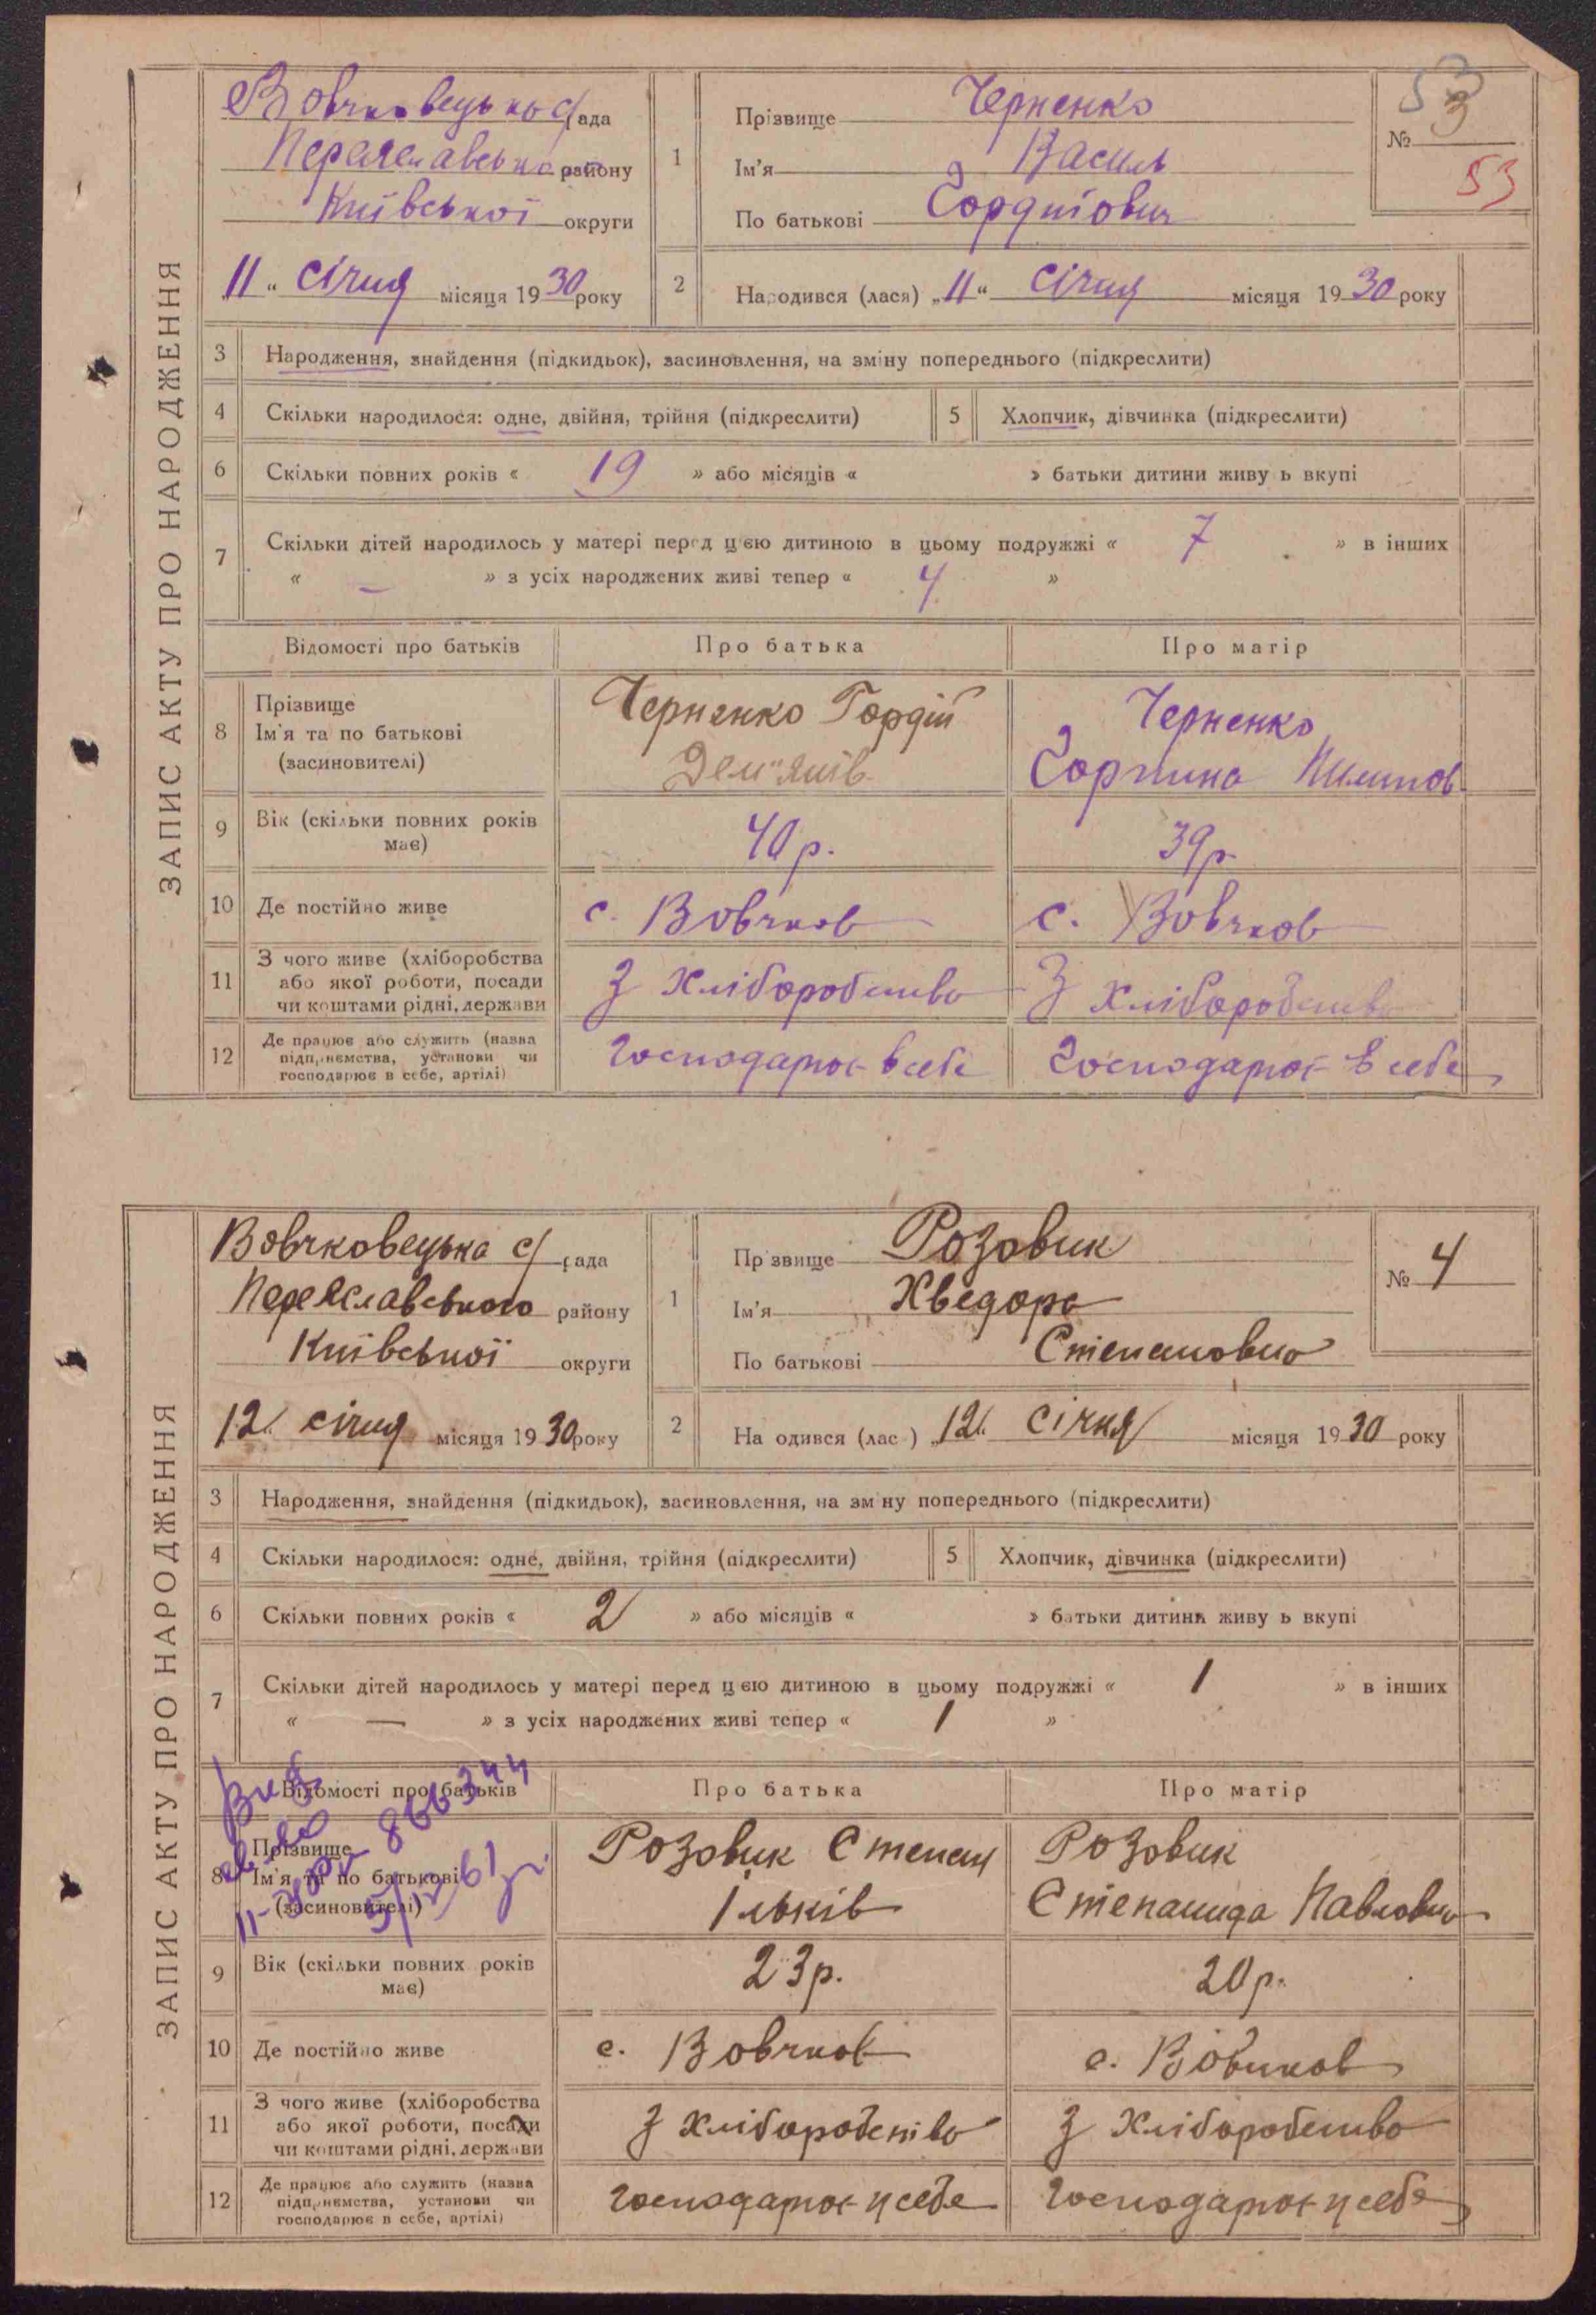 ЗАПИС АКТУ ПРО НАРОДЖЕННЯ
Вовчковецька с/рада
Переяславського району
Київської округи
„11“ січня місяця 1930 року
1
Прізвище Черненко
Ім'я Василь
По батькові Гордійович
№ 3
53
53
2
Народився (лася) „11“ січня місяця 1930 року
3 Народження, знайдення (підкидьок), засиновлення, на зміну попереднього (підкреслити)
4 Скільки народилося: одне, двійня, трійня (підкреслити) 5 Хлопчик, дівчинка (підкреслити)
6 Скільки повних років « 19 » або місяців « » батьки дитини живуть вкупі
7 Скільки дітей народилось у матері перед цією дитиною в цьому подружжі « 7 » в інших
« — » з усіх народжених живі тепер « 4 »
Відомості про батьків Про батька Про матір
8 Прізвище Ім'я та по батькові (засиновителі)
Черненко Гордій
Дем'янів
Черненко
Горпина Пилипов
9 Вік (скільки повних років має) 40 р. 39 р.
10 Де постійно живе с. Вовчков с. Вовчков
11 З чого живе (хліборобства або якої роботи, посади чи коштами рідні, держави
З хліборобства З хліборобства
12 Де працює або служить (назва підприємства, установи чи господарює в себе, артілі)
господарює в себе господарює в себе
ЗАПИС АКТУ ПРО НАРОДЖЕННЯ
Вовчковецька с/рада
Переяславського району
Київської округи
12 січня місяця 1930 року
1
Прізвище Розовик
Ім'я Хведора
По батькові Степановна
№ 4
2
Народився (лась) „12“ січня місяця 1930 року
3 Народження, знайдення (підкидьок), засиновлення, на зміну попереднього (підкреслити)
4 Скільки народилося: одне, двійня, трійня (підкреслити) 5 Хлопчик, дівчинка (підкреслити)
6 Скільки повних років « 2 » або місяців « » батьки дитини живуть вкупі
7 Скільки дітей народилось у матері перед цією дитиною в цьому подружжі « 1 » в інших
« — » з усіх народжених живі тепер « 1 »
Відомості про батьків Про батька Про матір
866344
5/12 61 г.
8 Прізвище Ім'я та по батькові (засиновителі)
Розовик Степан
Ільків
Розовик
Степанида Павловна
9 Вік (скільки повних років має) 23 р. 20 р.
10 Де постійно живе с. Вовчков с. Вовчков
11 З чого живе (хліборобства або якої роботи, посади чи коштами рідні, держави
З хліборобства З хліборобства
12 Де працює або служить (назва підприємства, установи чи господарює в себе, артілі)
господарює у себе господарює у себе